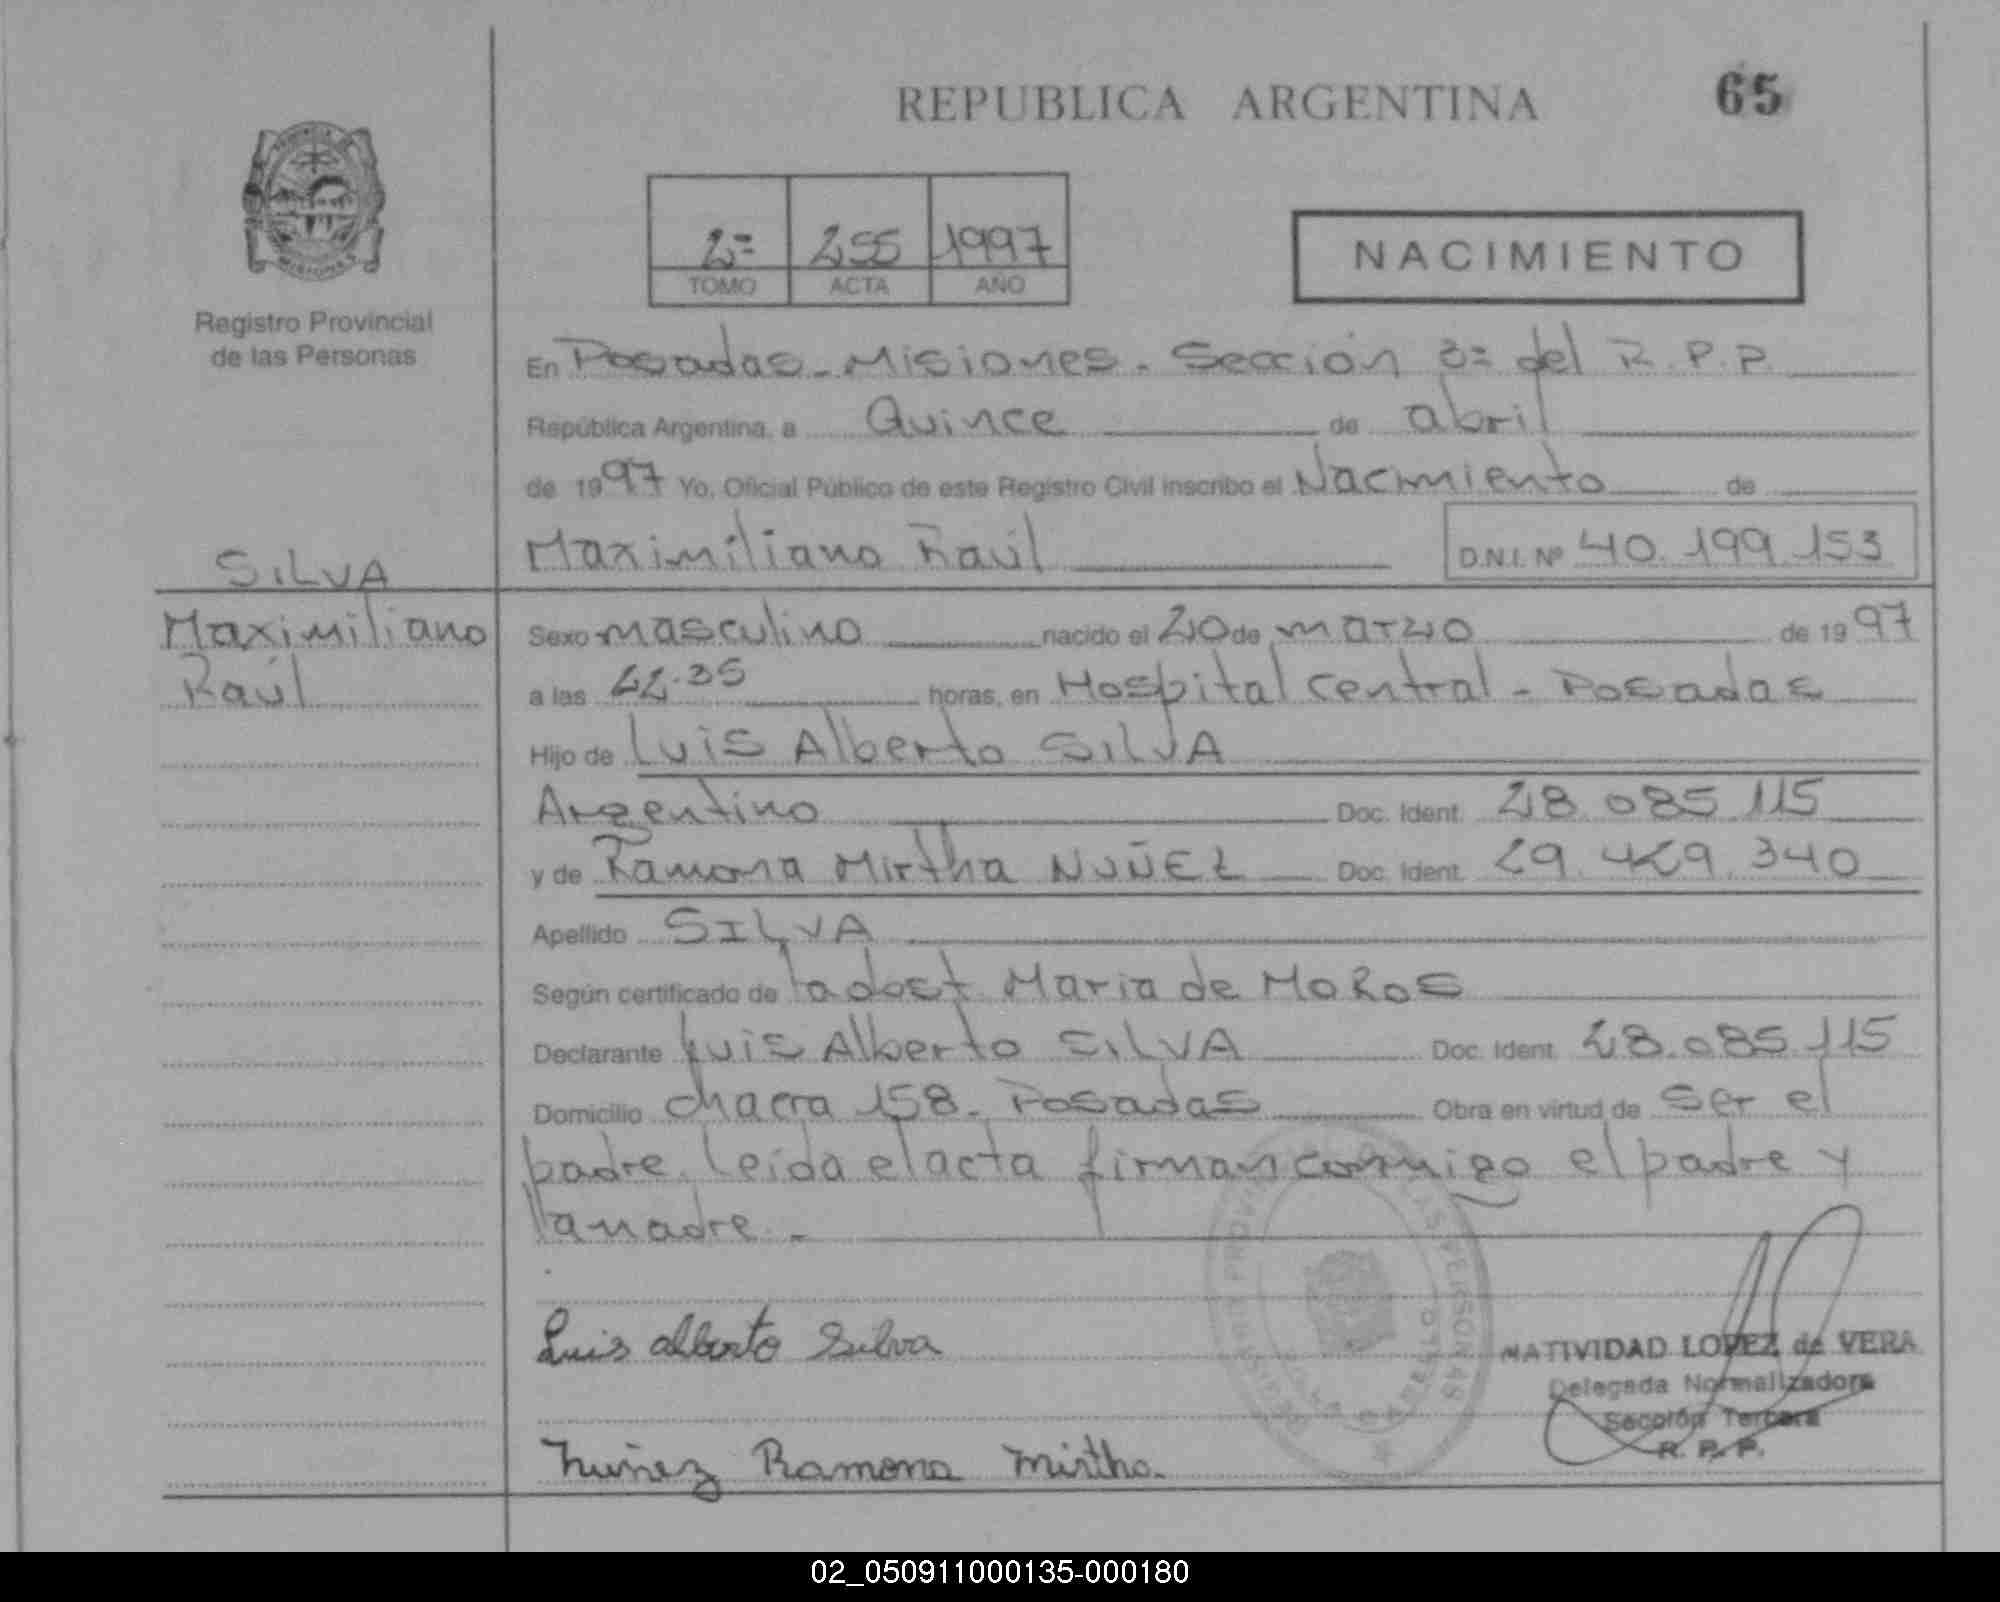 REPUBLICA ARGENTINA
65
2=
255
1997
TOMO
ACTA
AÑO
NACIMIENTO
Registro Provincial
de las Personas
En Posadas - Misiones. Sección 3= del R.P.P.
República Argentina, a Quince de abril
de 1997 Yo, Oficial Público de este Registro Civil inscribo el Nacimiento de
Maximiliano Raúl D.N.I. Nº 40.199.153
SILVA
Maximiliano
Raúl
Sexo masculino nacido el 20 de marzo de 1997
a las 22.35 horas, en Hospital Central - Posadas
Hijo de Luis Alberto SILVA
Argentino Doc. Ident. 28.085.115
y de Ramona Mirtha NUÑEZ Doc. Ident. 29.429.340
Apellido SILVA
Según certificado de la obst Maria de MoRos
Declarante Luis Alberto SILVA Doc. Ident. 28.085.115
Domicilio chacra 158. Posadas Obra en virtud de ser el
padre. Leída el acta firman conmigo el padre y
la madre.-
Luis Alberto Silva
NATIVIDAD LOPEZ de VERA
Delegada Normalizadora
Sección Tercera
R. P. P.
Nuñez Ramona Mirtha.
02_050911000135-000180